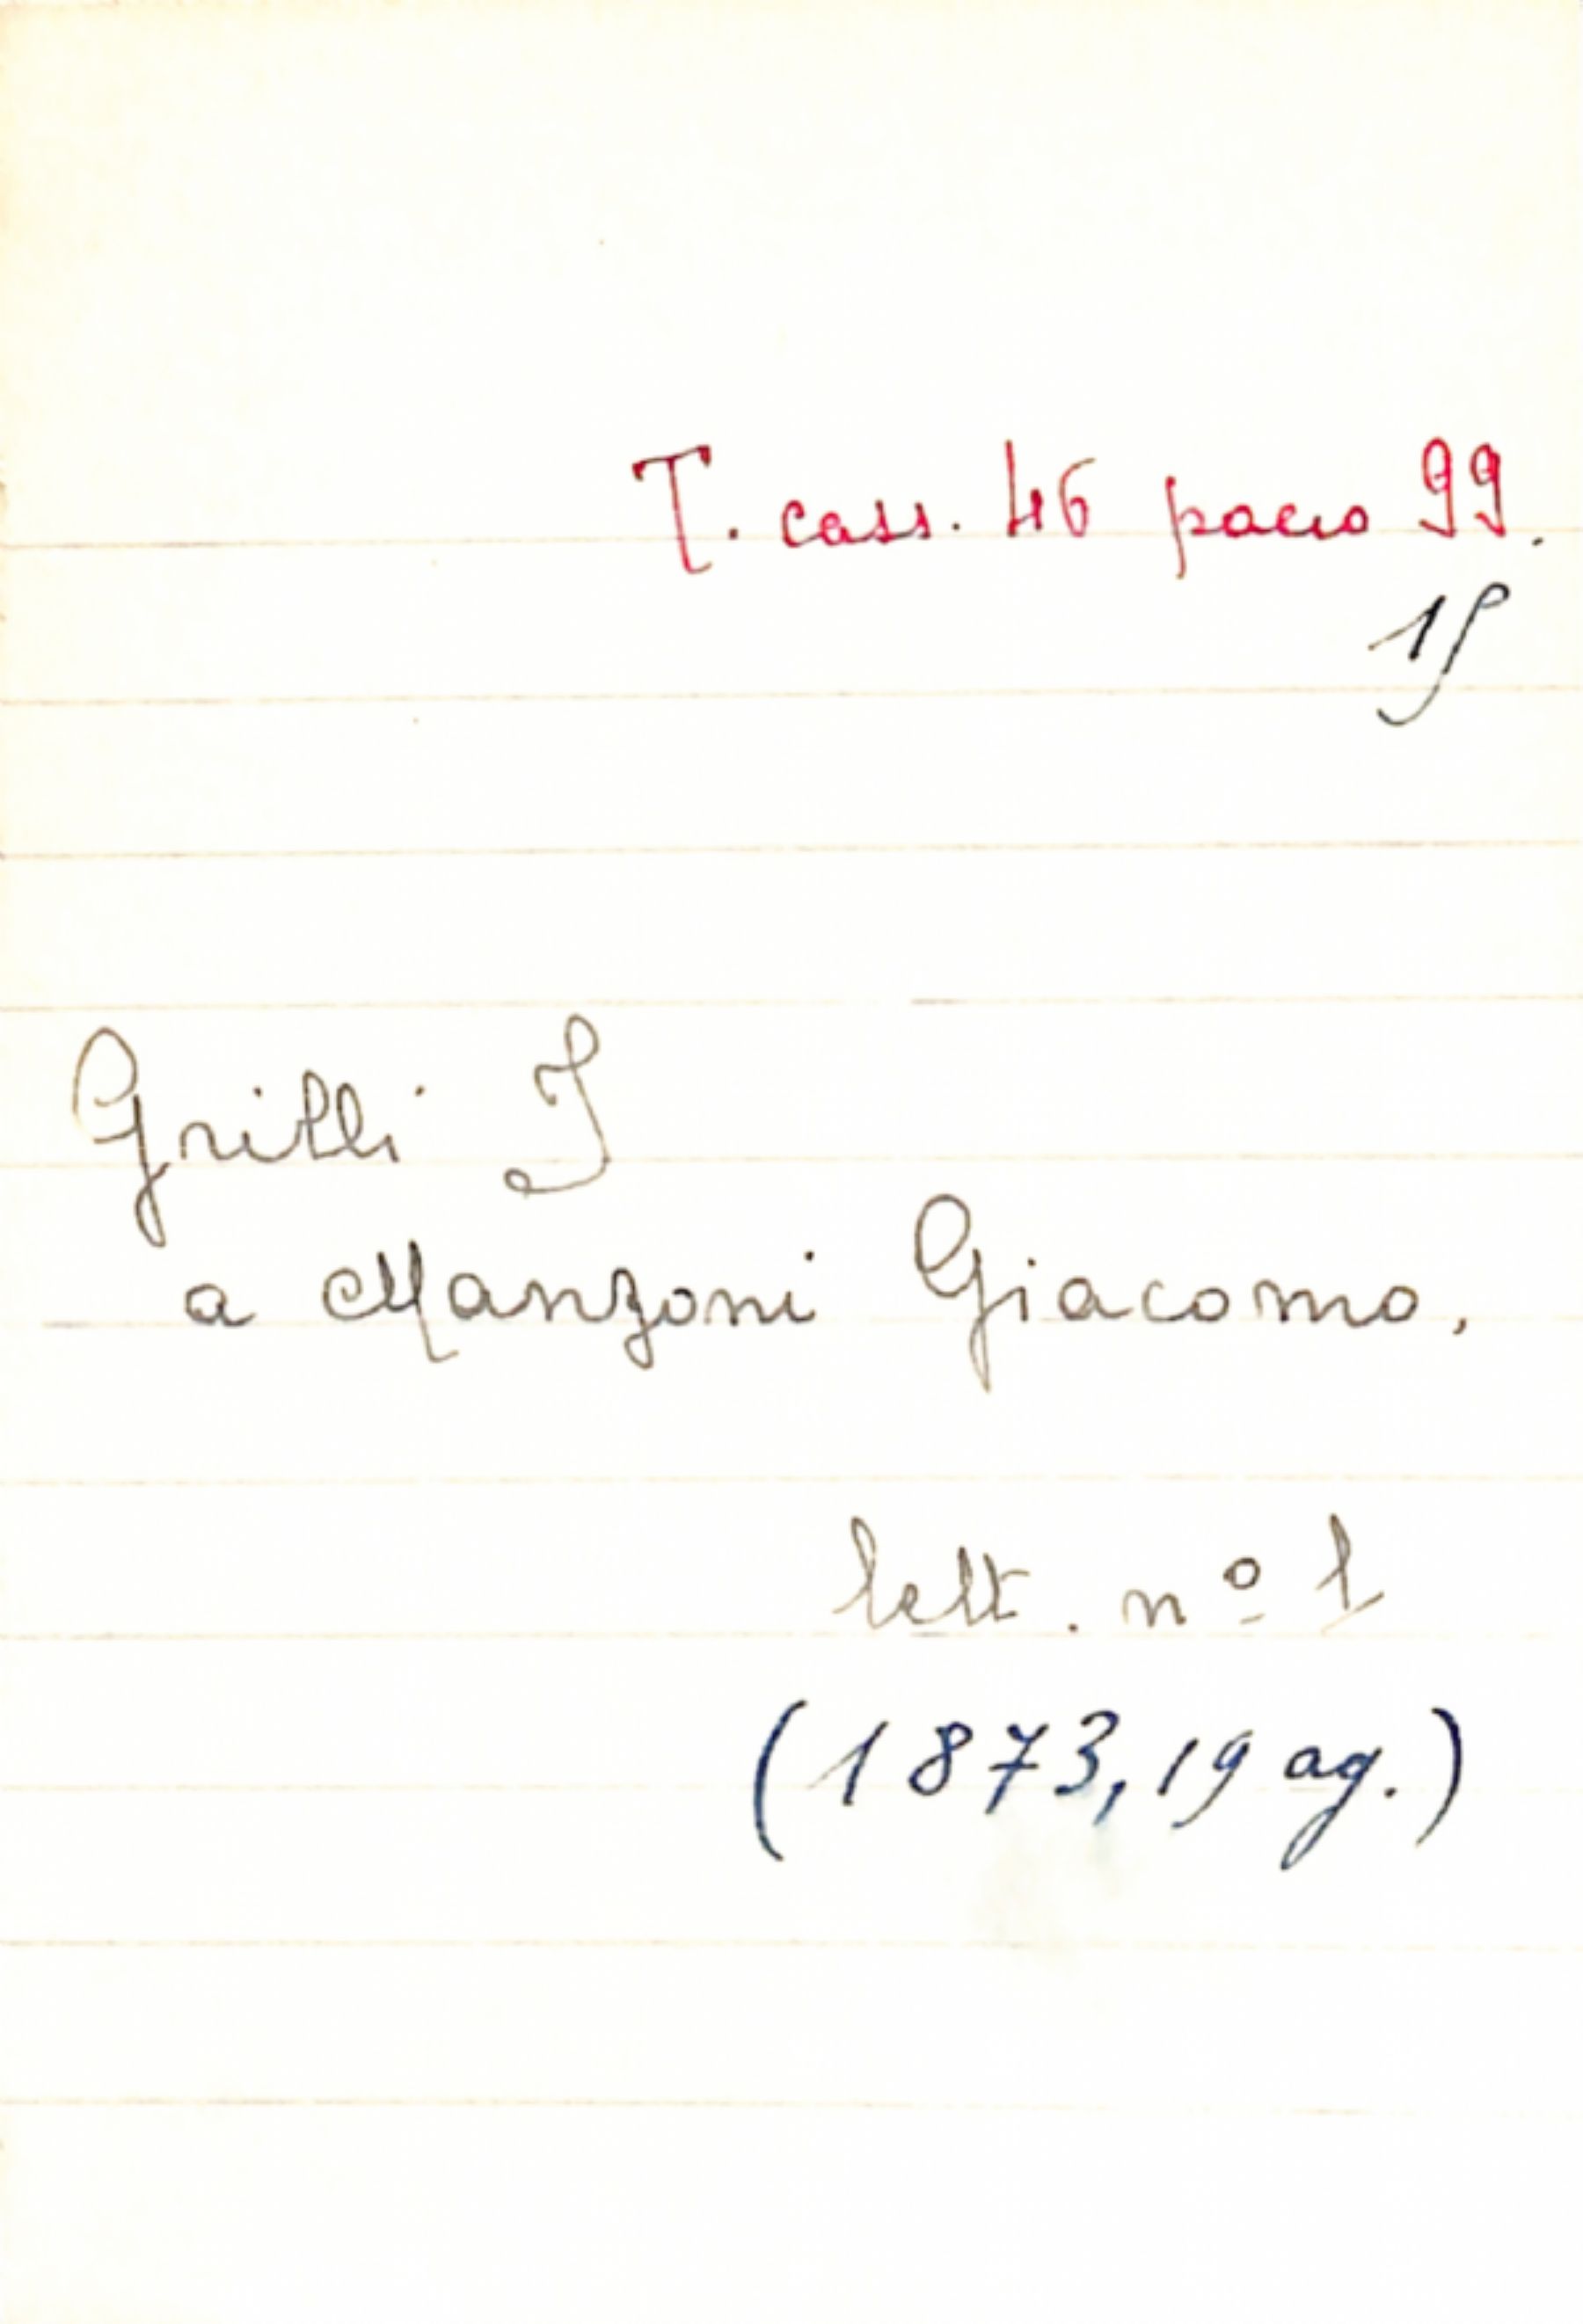 T. cass. 46 pacco 99.
15
Grilli I
a Manzoni Giacomo,
lett. nº 1
(1873, 19 ag.)